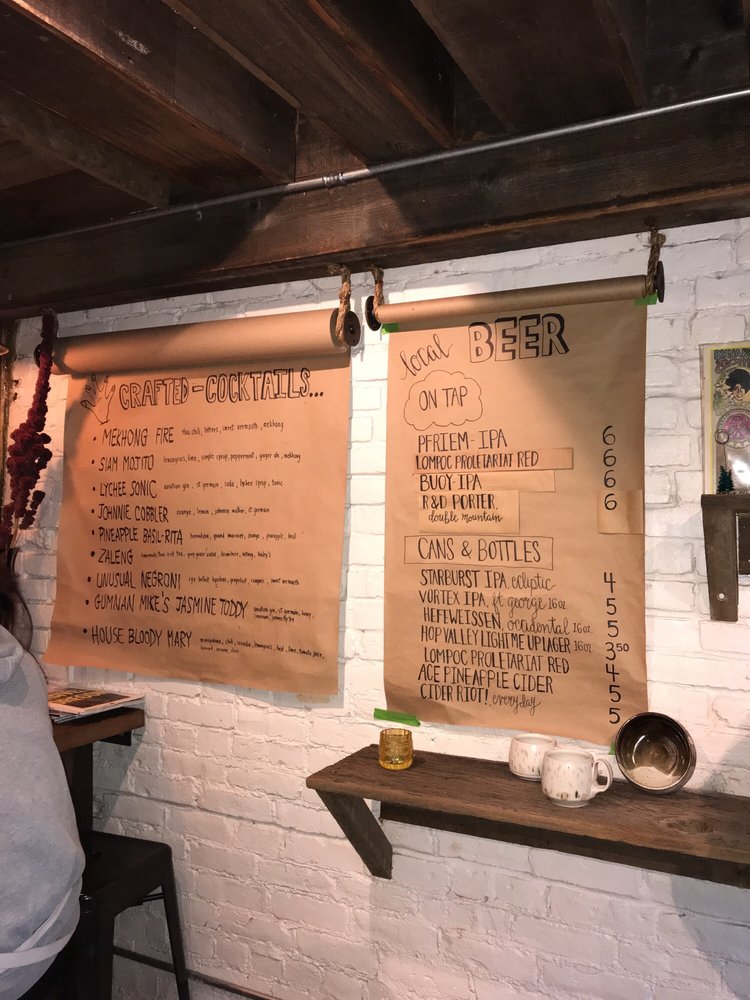 CRAFTED-COCKTAILS...
MEKHONG FIRE thai chili, bitters, sweet vermouth, mekhong
SIAM MOJITO lemongrass, lime, simple syrup, peppermint, ginger ale, mekhong
LYCHEE SONIC st germain, soda, lychee syrup, tonic
JOHNNIE COBBLER orange, lemon, johnnie walker, st germain
PINEAPPLE BASIL-RITA grand marnier, orange, pineapple, basil
ZALENG
UNUSUAL NEGRONI grapefruit, campari, sweet vermouth
GUMNAN MIKE'S JASMINE TODDY
HOUSE BLOODY MARY
local BEER
ON TAP
PFRIEM-IPA 6
LOMPOC PROLETARIAT RED 6
BUOY-IPA 6
R&D PORTER, 6
double mountain
CANS & BOTTLES
STARBURST IPA ecliptic 4
VORTEX IPA, ft george 16oz 5
HEFEWEISSEN, occidental 16oz. 5
HOP VALLEY LIGHT ME UP LAGER 16oz 3 50
LOMPOC PROLETARIAT RED 4
ACE PINEAPPLE CIDER 5
CIDER RIOT!, everyday 5